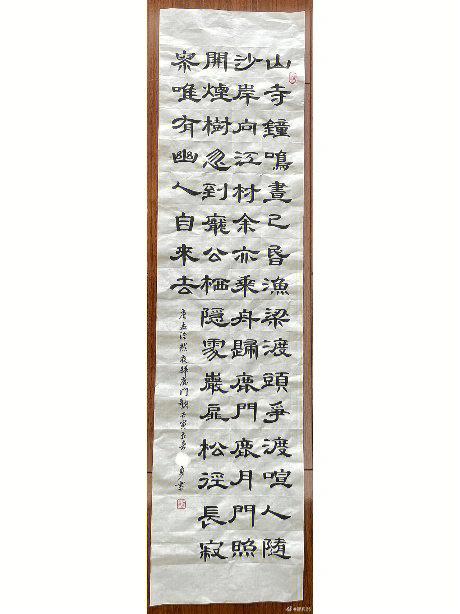 山寺鐘鳴晝已昏漁梁渡頭爭渡喧人隨
沙岸向江村余亦乘舟歸鹿門鹿月門照
開煙樹忽到龐公栖隱處巖扉松徑長寂
寥唯有幽人自來去
唐孟浩然夜歸鹿門歌壬寅
書